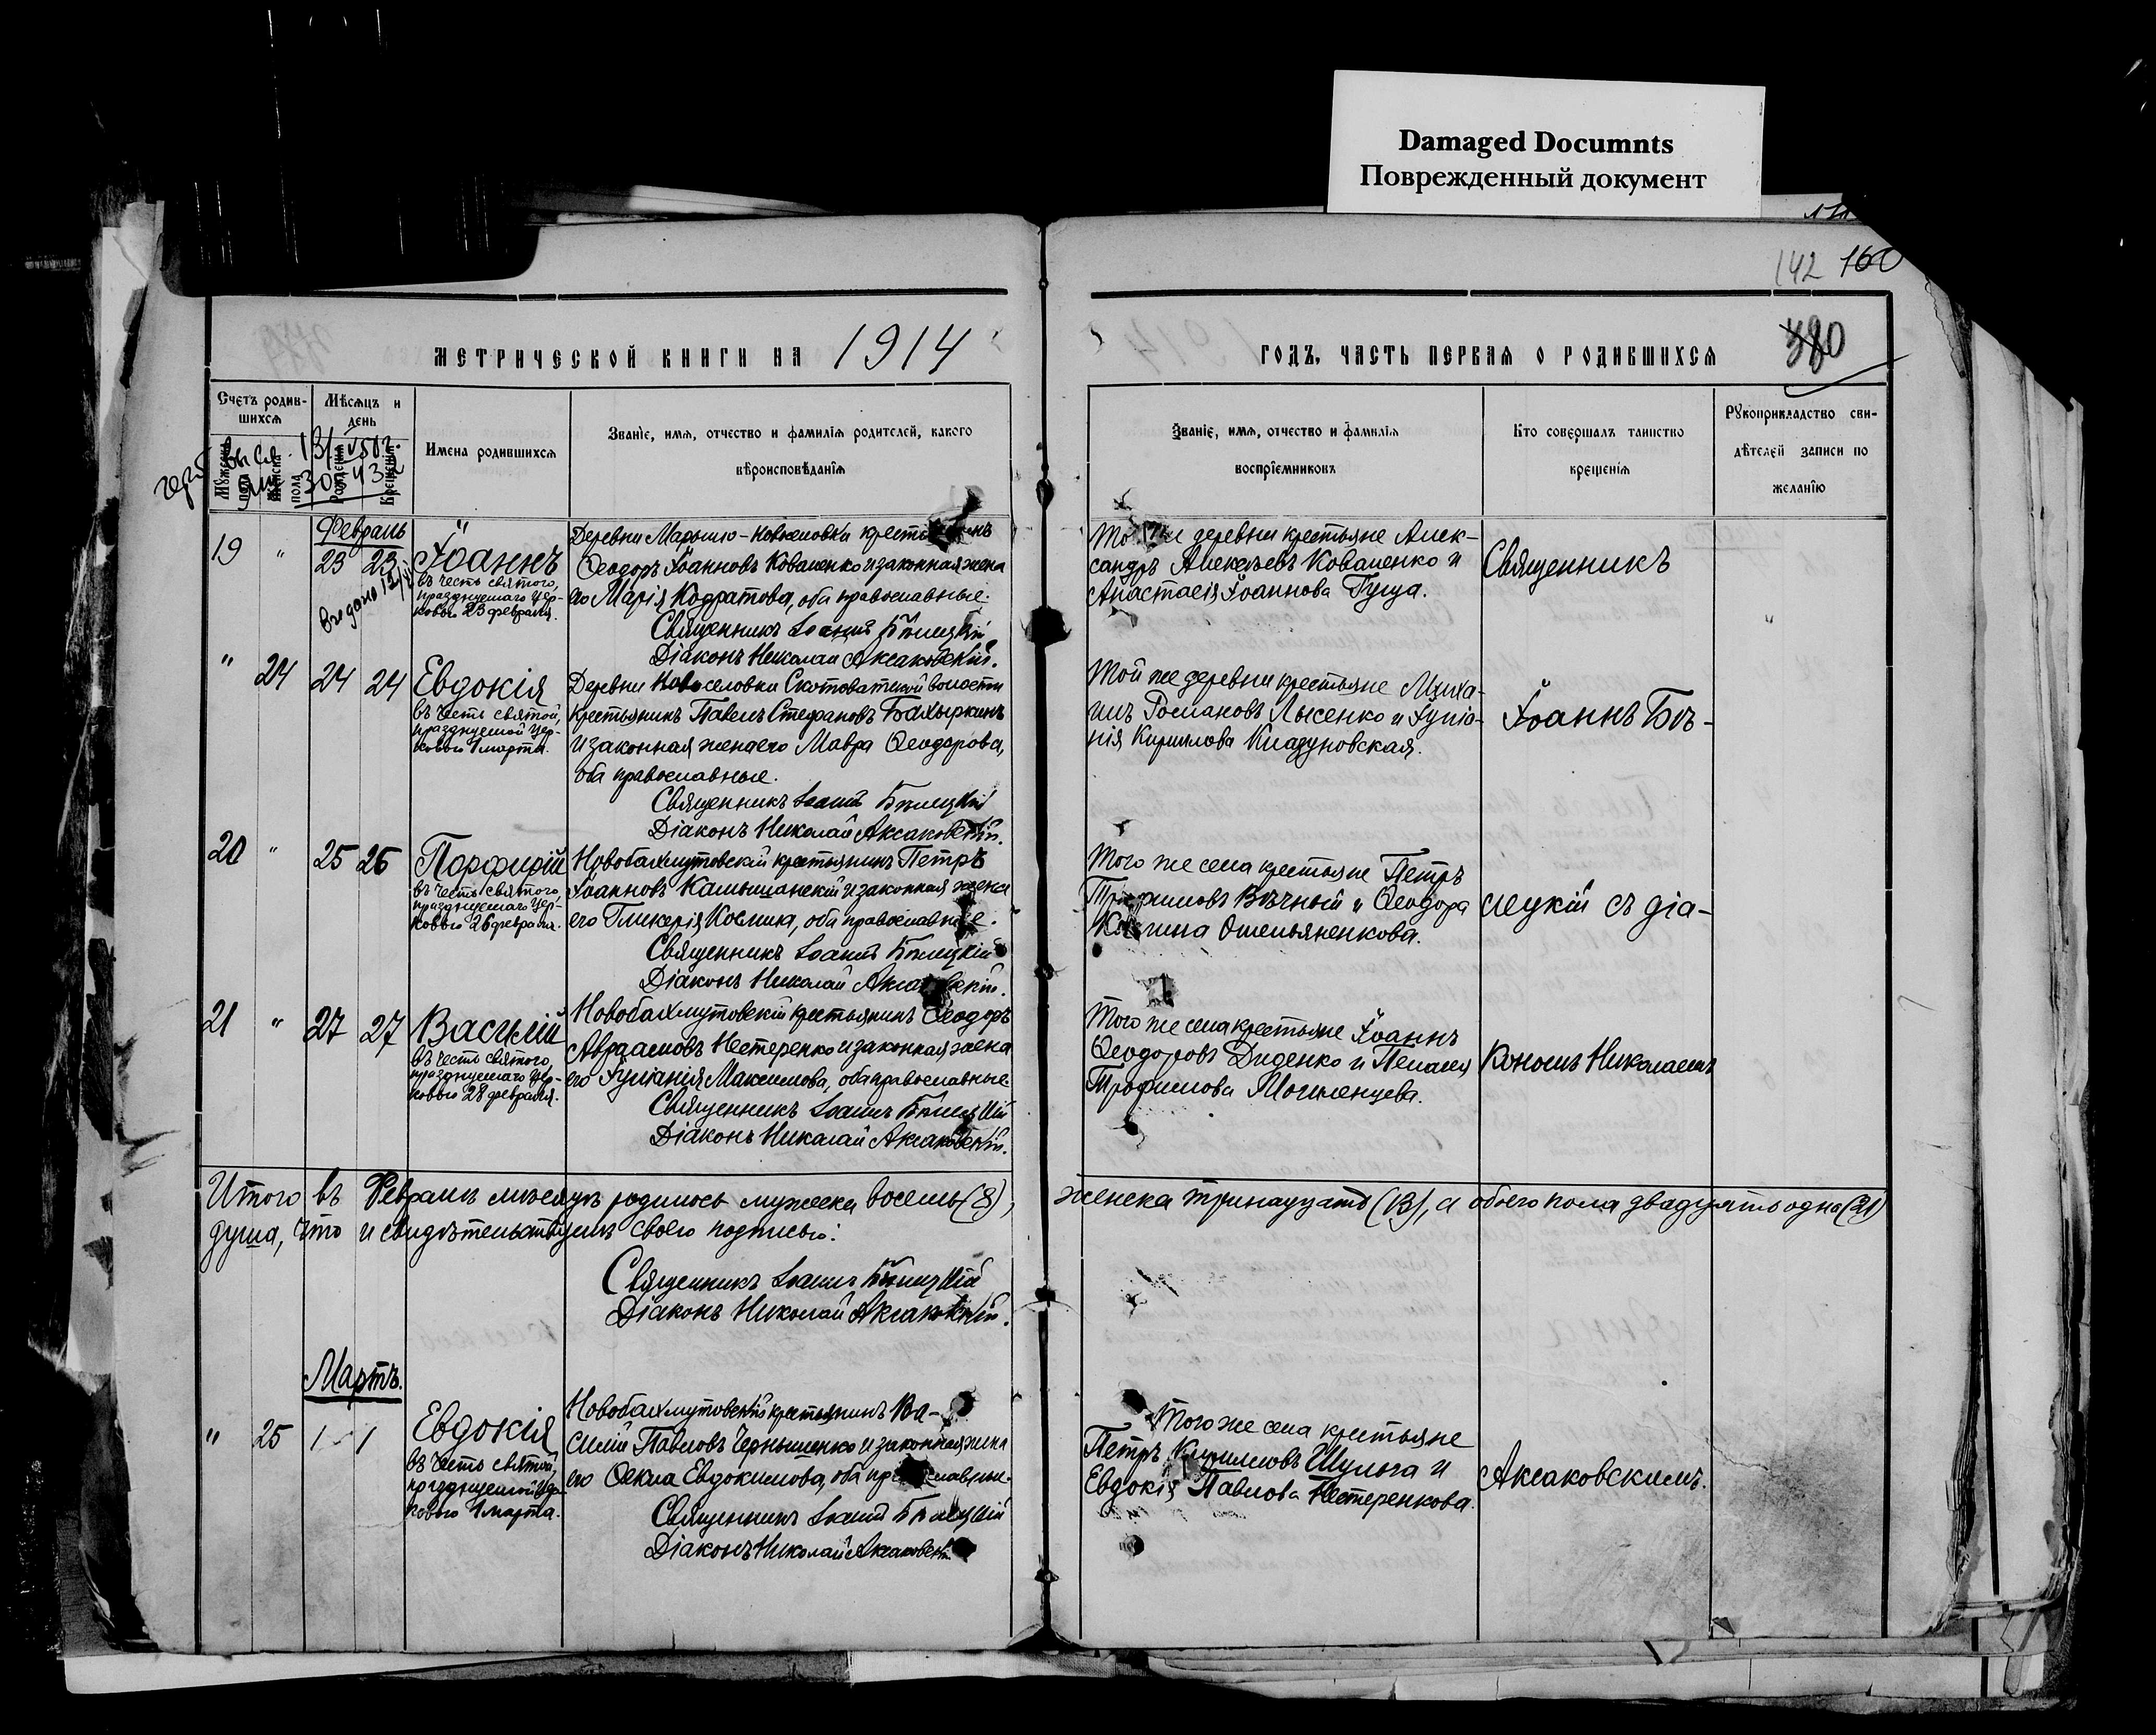 Damaged Documnts
Поврежденный документ
142 160
380
МЕТРИЧЕСКОЙ КНИГИ НА 1914
ГОДЪ, ЧАСТЬ ПЕРВАЯ О РОДИВШИХСЯ
Счетъ родив-
шихся
Мѣсяцъ и
день
Мужеска
пола
Женска
пола
Рожденія
Крещенія
Имена родившихся
Званіе, имя, отчество и фамилія родителей, какого
вѣроисповѣданія
Званіе, имя, отчество и фамилія
воспріемниковъ
Кто совершалъ таинство
крещенія
Рукоприкладство сви-
дѣтелей записи по
желанію
Февраль
19 " 23 23
Іоаннъ
въ честь святого,
празднуемаго цер-
ковью 23 февраля.
Деревни Марьино-Новоселовки
Ѳеодоръ Іоанновъ Коваленко и законная жена
его Марія Кодратова, оба православные.
Священникъ Іоаннъ Бѣлецкій
Діаконъ Николай Аксаковскій.
деревни крестьяне Алек-
сандръ Алексѣевъ Коваленко и
Анастасія Іоаннова Гуща.
Священникъ
" 24 24 24
Евдокія
въ честь святой,
празднуемой цер-
ковью 1 марта.
Деревни Новоселовки Скотоватской волости
крестьянинъ Павелъ Стефановъ Бахыркинъ
и законная жена его Мавра Ѳеодорова,
оба православные.
Священникъ Іоаннъ Бѣлецкій
Діаконъ Николай Аксаковскій.
Той же деревни крестьяне Миха-
илъ Романовъ Лысенко и Іуліа-
нія Кириллова Кладуновская.
Іоаннъ Бѣ-
20 " 25 26
Порфирій
въ честь святого,
празднуемаго цер-
ковью 26 февраля.
Новобахмутовскій крестьянинъ Петръ
Іоанновъ Камышанскій и законная жена
его Гликерія Космина, оба православные.
Священникъ Іоаннъ Бѣлецкій
Діаконъ Николай
Того же села крестьяне Петръ
Вѣчный и Ѳеодора
Омельяненкова.
лецкій съ діа-
21 " 27 27
Василій
въ честь святого,
празднуемаго цер-
ковью 28 февраля.
Новобахмутовскій крестьянинъ Ѳеодоръ
Авраамовъ Нестеренко и законная жена
его Іуліанія Максимова, оба православные.
Священникъ Іоаннъ Бѣлецкій
Діаконъ Николай Аксаковскій.
Того же села крестьяне Іоаннъ
Ѳеодоровъ Диденко и Пелагея
Трофимова Могиленцева.
кономъ Николаемъ
Итого въ Февралѣ мѣсяцѣ родилось мужеска восемь (8), женска тринадцать (13), а обоего пола двадцать одна (21)
душа, что и свидѣтельствуемъ своею подписью:
Священникъ Іоаннъ Бѣлецкій
Діаконъ Николай Аксаковскій.
Мартъ.
" 25 1 1
Евдокія
въ честь святой,
празднуемой цер-
ковью 1 марта.
Новобахмутовскій крестьянинъ Ва-
силій Павловъ Чернышенко и законная жена
его Ѳекла Евдокимова, оба православные.
Священникъ Іоаннъ Бѣлецкій
Діаконъ Николай
Того же села крестьяне
Петръ Кирилловъ Шульга и
Евдокія Павлова Нестеренкова.
Аксаковскимъ.